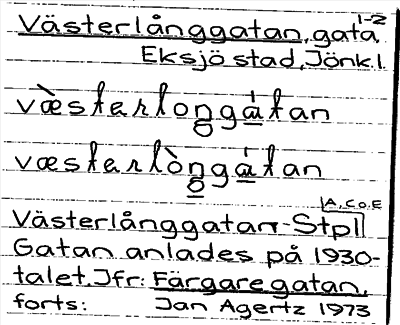 1-2
Västerlånggatan, gata
Eksjö stad, Jönk.l.
væ̀starlongá̱tan
væstarlòngá̱tan
A, C o. E
Västerlånggatan - Stpl
Gatan anlades på 1930-
talet. Jfr: Färgaregatan.
forts: Jan Agertz 1973